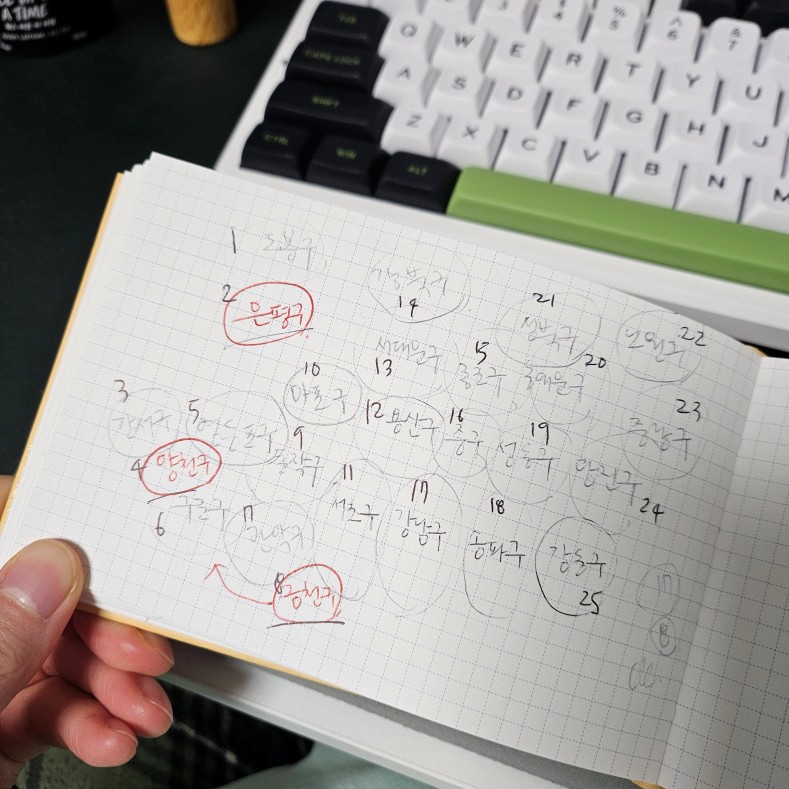 A TIME
TAB
Q W E R T Y U
$ 4
% 5
^ 6
& 7
CAPS LOCK
A S D F G H J
SHIFT
Z X C V B N M
CTRL
WIN
ALT
1 도봉구
2 은평구
14 강북구
21 성북구
22 노원구
13 서대문구
15 종로구
20 동대문구
10 마포구
3 강서구
5 영등포구
12 용산구
16 중구
19 성동구
23 중랑구
4 양천구
9 동작구
24
6 구로구
11 서초구
17 강남구
18 송파구
25 강동구
관악구
8 금천구
17
B